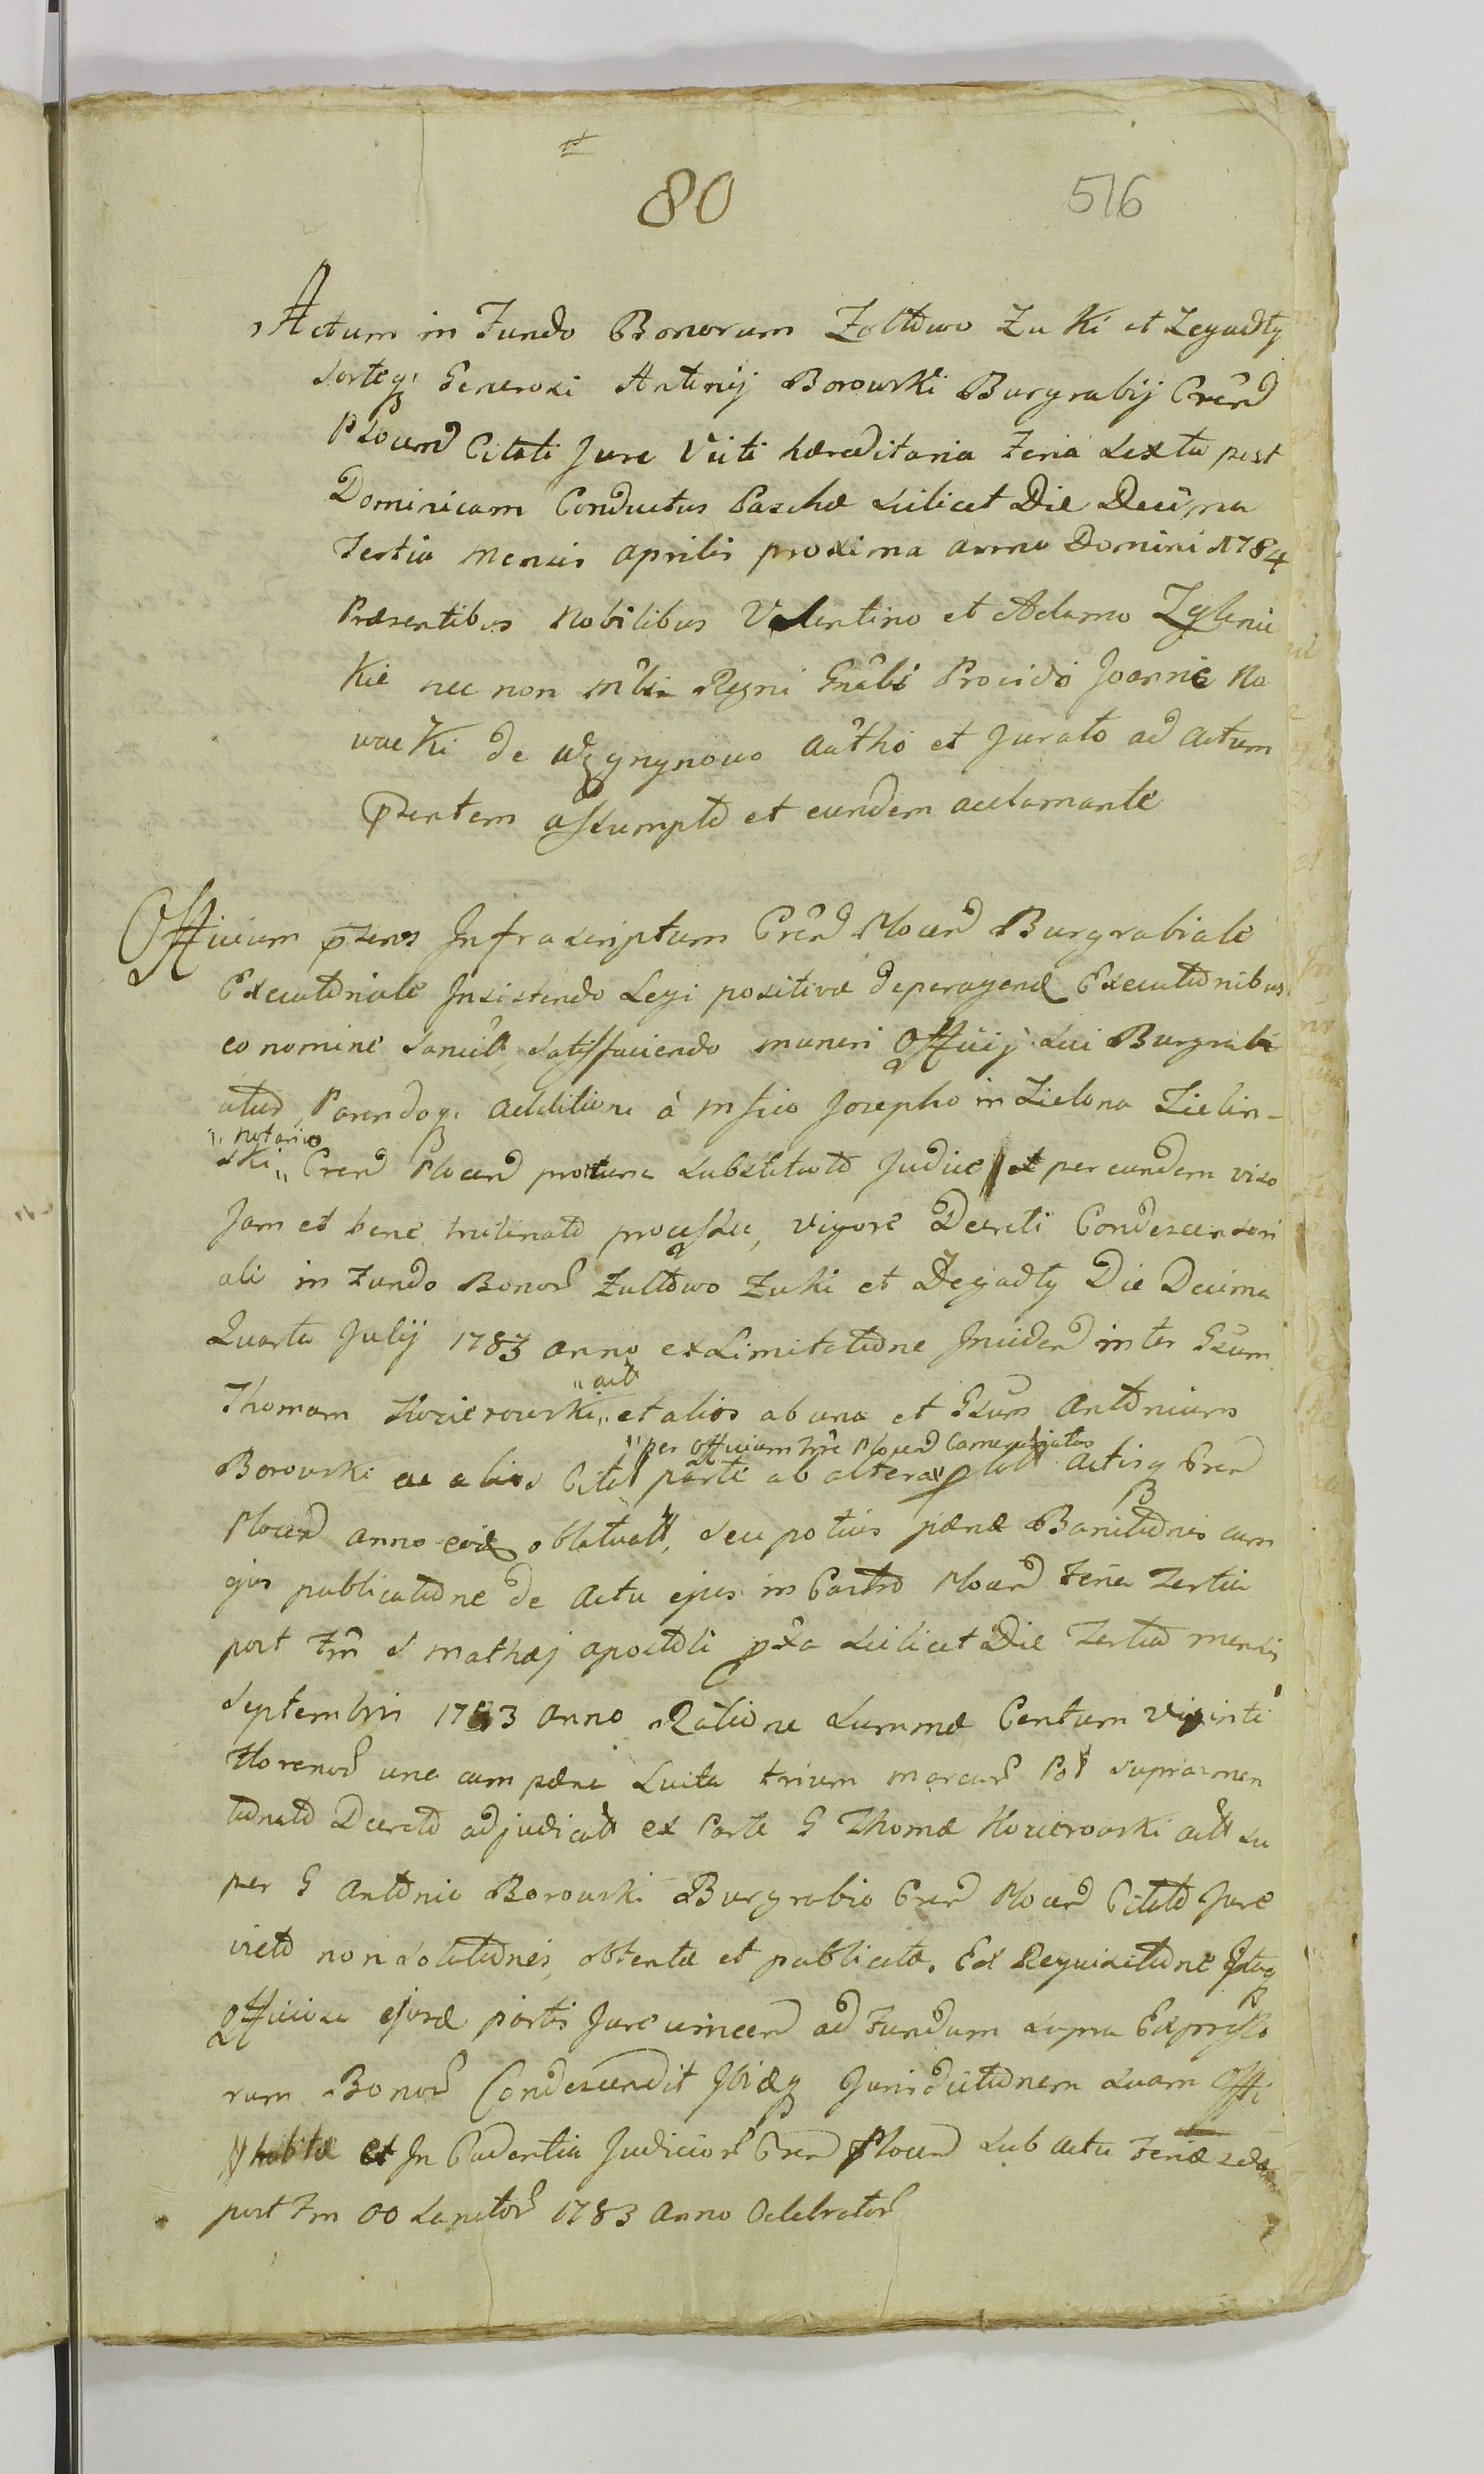 80
516
Actum in Fundo Bonorum Zołtowo Zuki et Zegadły
Sorteq; Generosi Antonij Borowski Burgrabij Cren̄d
Plocen̄d Citati Jure Victi hæreditaria Feria Sexta post
Dominicam Conductus Paschæ Scilicet Die Decima
Tertia Mensis Aprilis proxima anno Domini 1784
Præsentibus Nobilibus Valentino et Adamo
nec non Regni Gnäli Provido Joanne No
wacKi de autho et Jurato ad actum
p̄sentem assumpto et eundem acclamante
Officium p̄sens Infrascriptum Cren̄d Plocen̄d Burgrabiale
Executoriale Insistendo Legi positivæ de peragend Executionibus
eo nomine satisfaciendo muneri Officij sui Burgrabi
atus Parendoq; additione à Josepho in Zielona Zielin-
"notario
ski " Cren̄d Plocen̄d Substituto Judice et per eundem viso
Jam et bene trutinato processu, vigore Decreti Condescensori
ali in Fundo Bonor Zułtowo Zuki et Zegadły Die Decima
Quarta Julij 1783 anno ex Limitatione Inciden inter Gsum
"act
Thomam Kozierowski " et alios ab una et Gsum Antonium
"per Officium Plocen̄d Camerariatus
Borowski ac alios Citat parte ab altera lat Actisq Cren
Plocen̄d anno eod oblatuat, seu potius pænæ Banitionis cum
ejus publicatione de Actu ejus in Castro Plocen̄d Feria Tertia
post Fm̄ S Mathæj Apostoli pxa Scilicet Die Tertia mensis
Septembris 1783 anno Ratione Summæ Centum Viginti
florenor una cum pæna Luita trium marcar Pol supramen
tionato Decreto adjudicat ex Parte G Thomæ Kozierowski act su
per G Antonio Borowski Burgrabio Cren Plocen Citato Jure
victo non solutionis, obtentæ et publicatæ. Ex Requisitione Itaq
Officiosa ejusd partis Jure vincen ad Fundum supra Expresso
rum Bonor Condescendit Ibidq Jurisdictionem suam Offi
habitæ et In Cadentia Judicior Cren Plocen sub actu Feriæ 2dæ
post Fm OO Sanctor 1783 Anno Celebrator